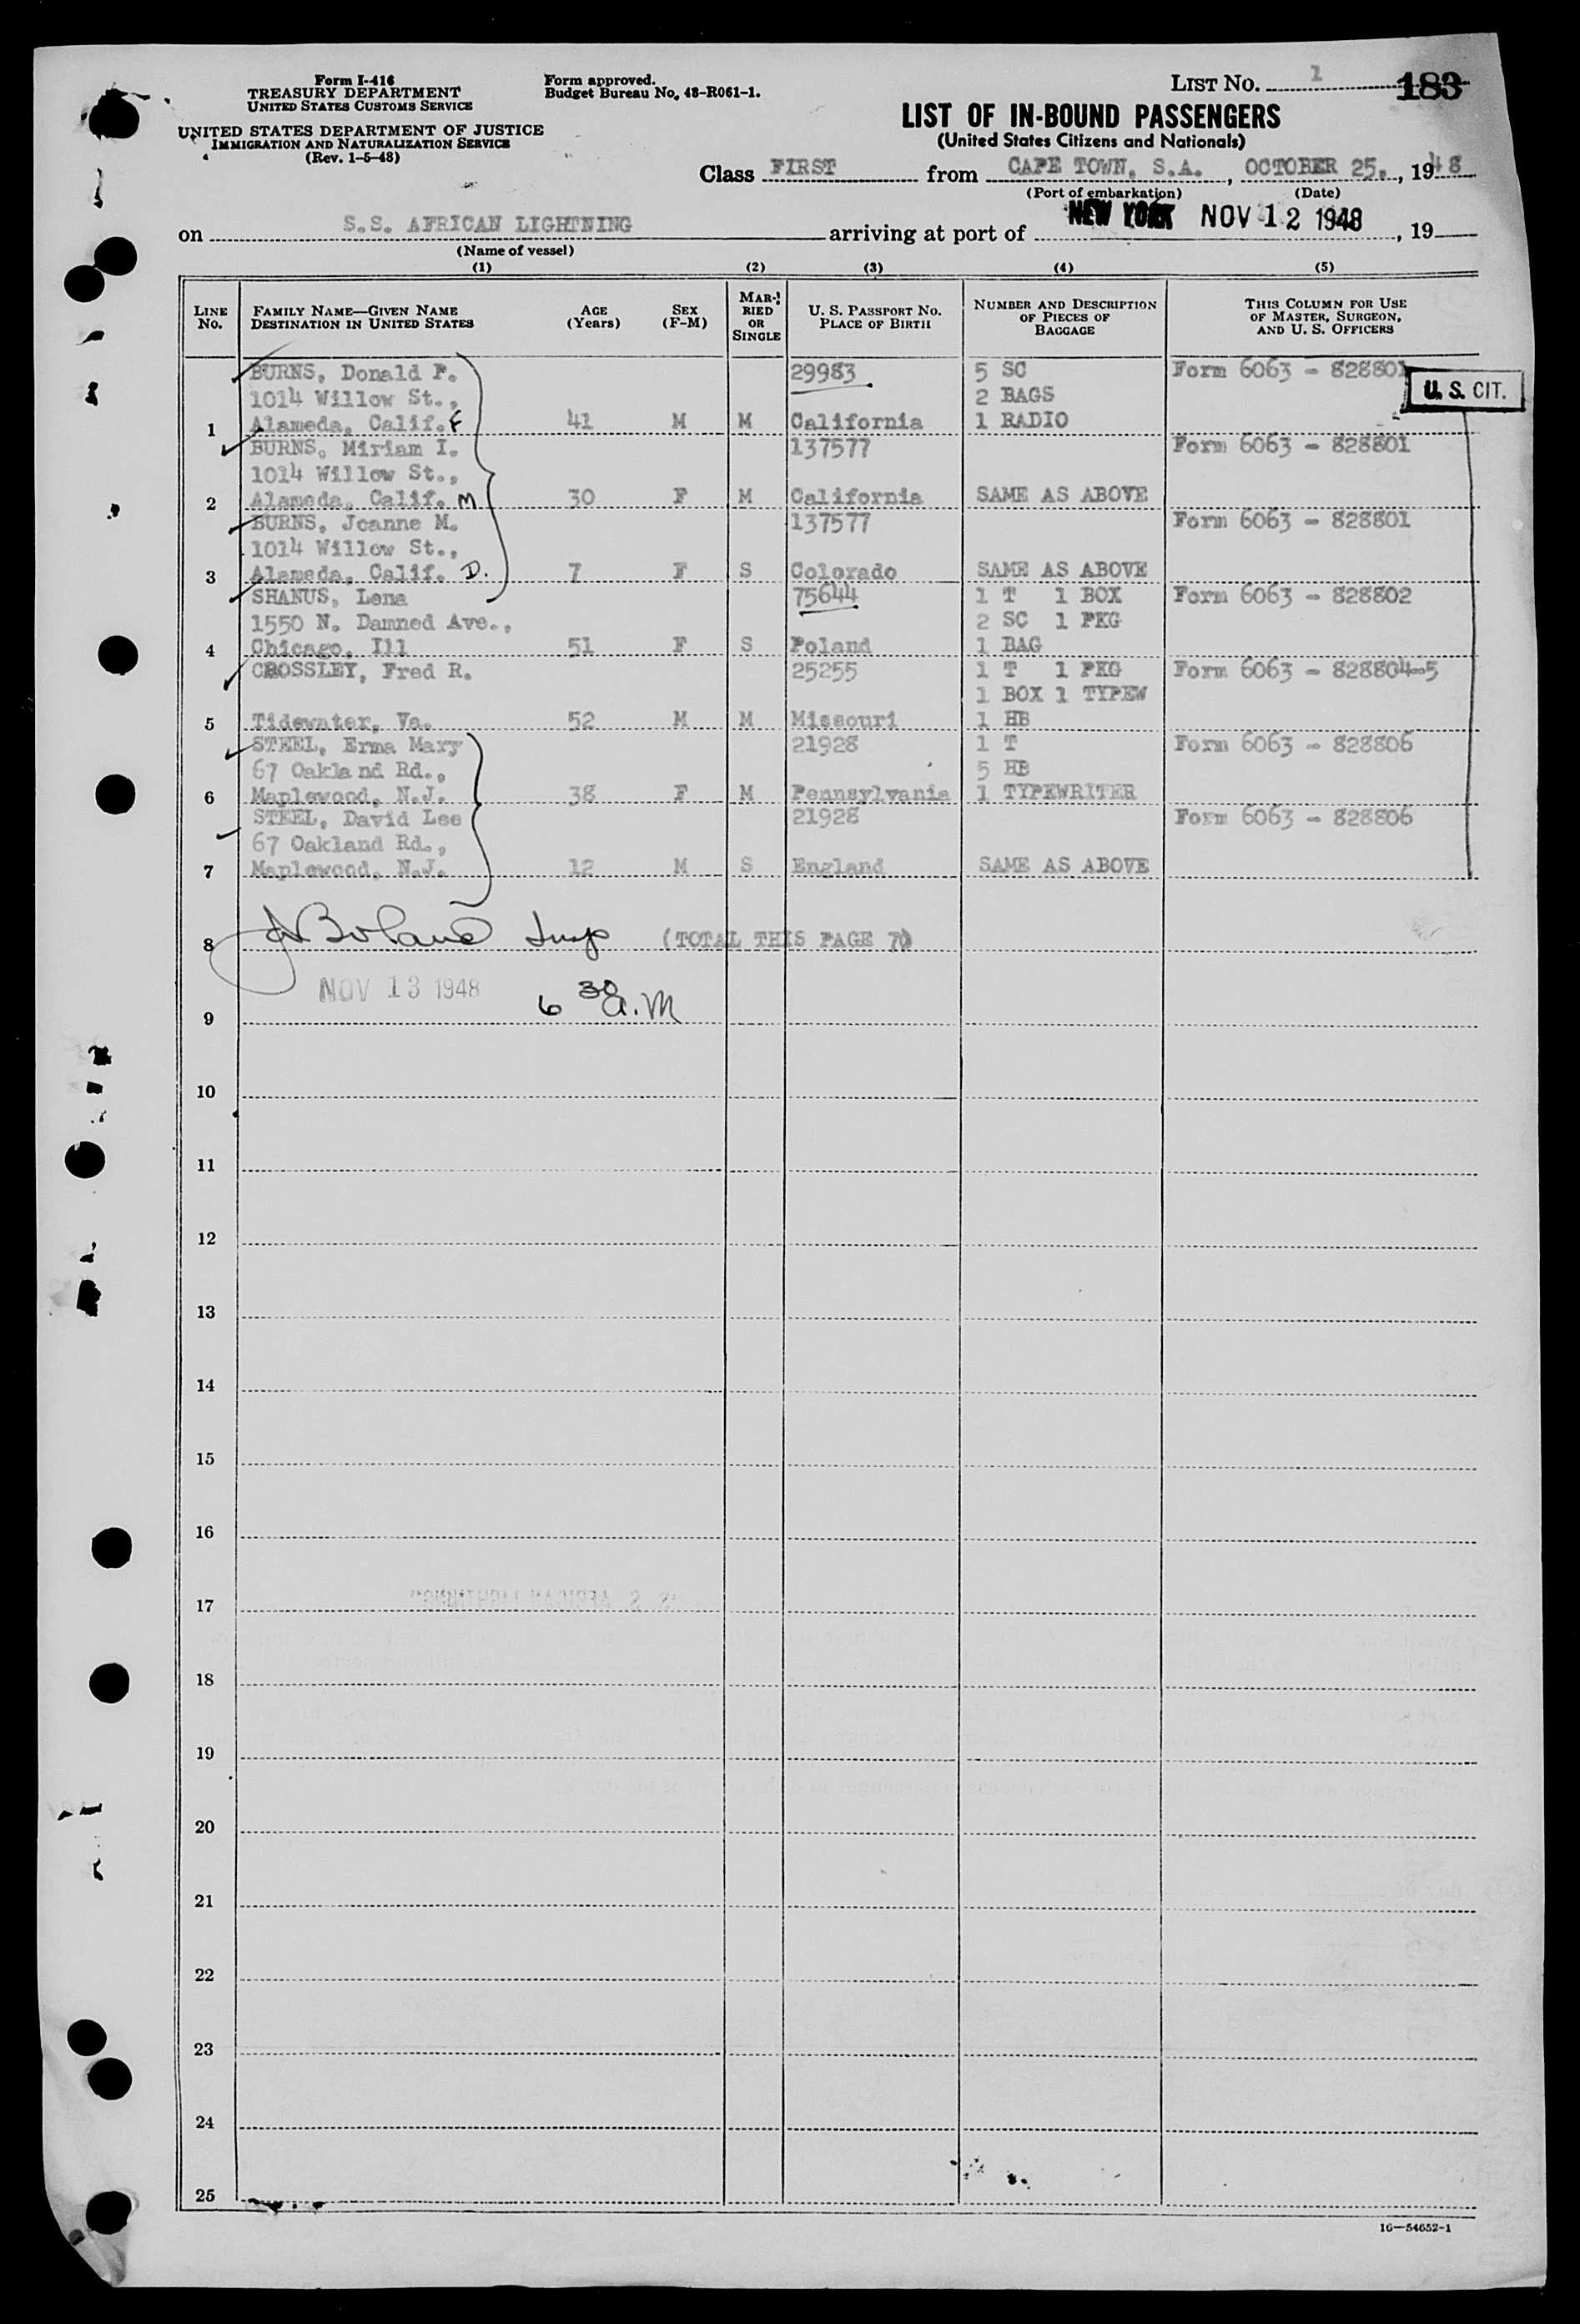 Form I-416
TREASURY DEPARTMENT
UNITED STATES CUSTOMS SERVICE
UNITED STATES DEPARTMENT OF JUSTICE
IMMIGRATION AND NATURALIZATION SERVICE
(Rev. 1-5-48)
Form approved.
Budget Bureau No. 48-R061-1.
LIST NO. 1 183
LIST OF IN-BOUND PASSENGERS
(United States Citizens and Nationals)
Class FIRST from CAPE TOWN, S.A., OCTOBER 25, , 1948
(Port of embarkation) (Date)
on S.S. AFRICAN LIGHTNING arriving at port of NEW YORK NOV 12 1948, 19
(Name of vessel)
(1) (2) (3) (4) (5)
LINE NO. FAMILY NAME—GIVEN NAME DESTINATION IN UNITED STATES AGE (Years) SEX (F-M) MARRIED OR SINGLE U. S. PASSPORT NO. PLACE OF BIRTH NUMBER AND DESCRIPTION OF PIECES OF BAGGAGE THIS COLUMN FOR USE OF MASTER, SURGEON, AND U. S. OFFICERS
BURNS, Donald F. 29983 5 SC Form 6063 - 828801
U. S. CIT.
1014 Willow St., 2 BAGS
1 Alameda, Calif. F 41 M M California 1 RADIO
BURNS, Miriam I. 137577 Form 6063 - 828801
1014 Willow St.,
2 Alameda, Calif. M 30 F M California SAME AS ABOVE
BURNS, Joanne M. 137577 Form 6063 - 828801
1014 Willow St.,
3 Alameda, Calif. D. 7 F S Colorado SAME AS ABOVE
SHANUS, Lena 75644 1 T 1 BOX Form 6063 - 828802
1550 N. Damned Ave., 2 SC 1 PKG
4 Chicago, Ill 51 F S Poland 1 BAG
CROSSLEY, Fred R. 25255 1 T 1 PKG Form 6063 - 828804-5
1 BOX 1 TYPEW
5 Tidewater, Va. 52 M M Missouri 1 HB
STEEL, Erma Mary 21928 1 T Form 6063 - 828806
67 Oakland Rd., 5 HB
6 Maplewood, N.J. 38 F M Pennsylvania 1 TYPEWRITER
STEEL, David Lee 21928 Form 6063 - 828806
67 Oakland Rd.,
7 Maplewood, N.J. 12 M S England SAME AS ABOVE
8 Boland Insp (TOTAL THIS PAGE 7)
NOV 13 1948 6 30 a.m
9
10
11
12
13
14
15
16
17
18
19
20
21
22
23
24
25
16—54652-1